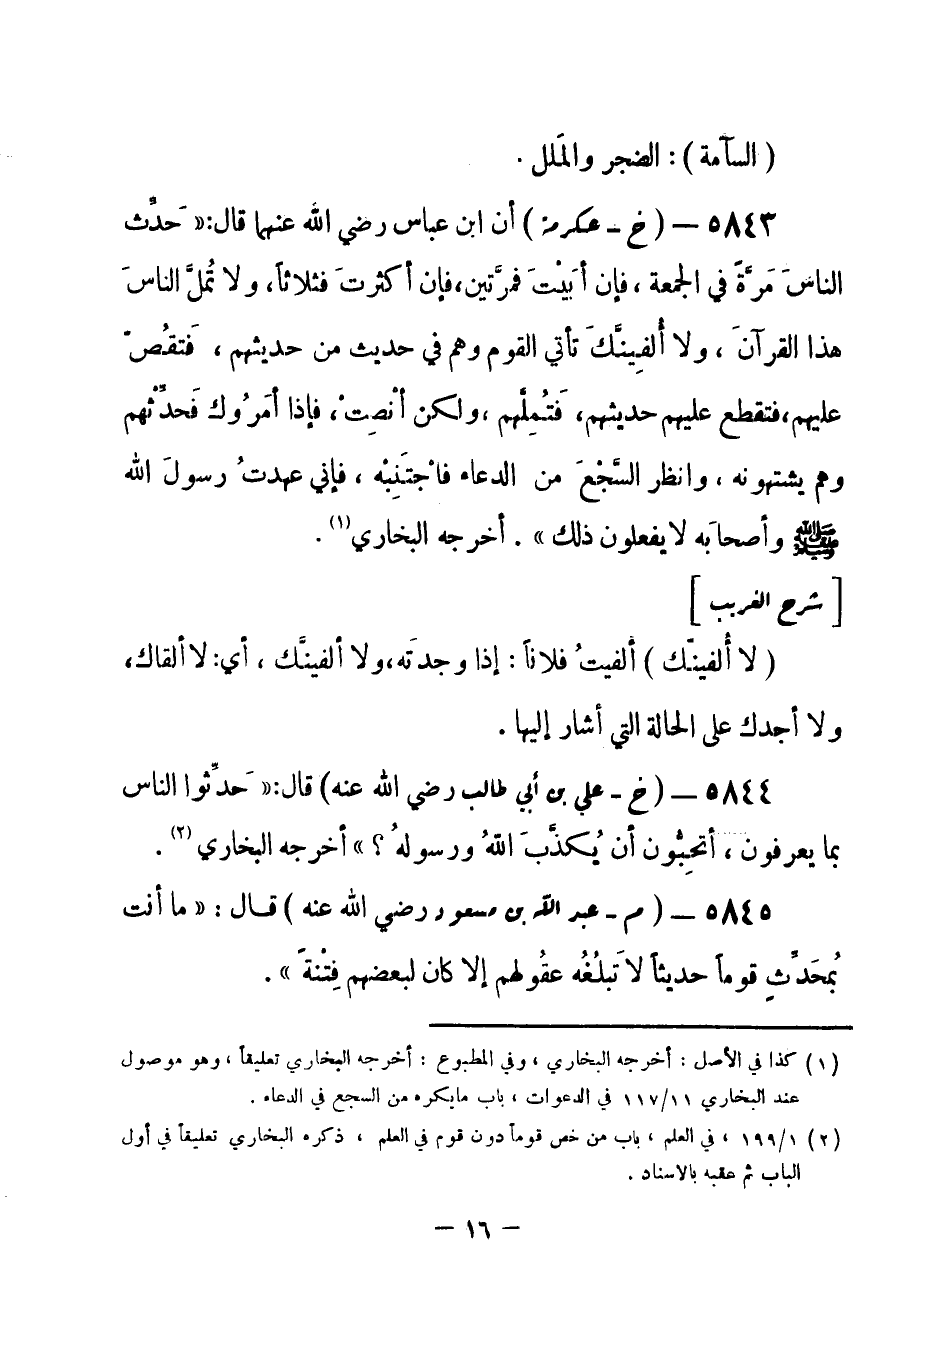 ( السآمة ) : الضجر والمَلل .
٥٨٤٣ – ( خ - عكرمة ) أن ابن عباس رضي الله عنهما قال: « حَدِّث
الناسَ مَرَّةً في الجمعة ، فإن أبَيْتَ فمرَّتين، فإن أكثرتَ فثلاثاً، ولا تُمِلَّ الناسَ
هذا القرآنَ ، ولا أُلفِينَّكَ تأتي القوم وهم في حديث من حديثهم ، فَتقُصّ
عليهم،فتقطع عليهم حديثهم، فَتُمِلَّهم ،ولكن أنْصِتْ، فإذا أمَرُوك فَحدِّثْهم
وهم يشتهونه ، وانظر السَّجْعَ من الدعاء فاجْتَنِبْه ، فإني عهدتُ رسولَ الله
ﷺ وأصحابَه لايفعلون ذلك » . أخرجه البخاري(١) .
[ شرح الغريب ]
( لا أُلفينّك ) ألفيتُ فلاناً : إذا وجدتَه،ولا ألفينَّك ، أي: لا ألقاك،
ولا أجدك على الحالة التي أشار إليها .
٥٨٤٤ – ( خ - علي بن أبي طالب رضي الله عنه) قال: « حَدِّثوا الناس
بما يعرفون ، أتحِبُّون أن يُكذَّبَ اللهُ ورسولهُ ؟ » أخرجه البخاري (٢) .
٥٨٤٥ – ( م - عبد الله بن مسعود رضي الله عنه ) قال : « ما أنت
بُمحَدِّثٍ قوماً حديثاً لا تَبلُغُه عقُولهم إلا كان لبعضهم فِتْنةً » .
(١) كذا في الأصل : أخرجه البخاري ، وفي المطبوع : أخرجه البخاري تعليقاً ، وهو موصول
عند البخاري ١١/ ١١٧ في الدعوات ، باب مايكره من السجع في الدعاء .
(٢) ١/ ١٩٩ ، في العلم ، باب من خص قوماً دون قوم في العلم ، ذكره البخاري تعليقاً في أول
الباب ثم عقبه بالاسناد .
– ١٦ –